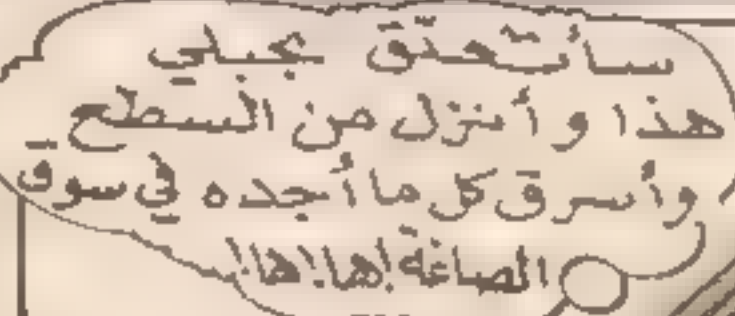 سأتحقّق بحبلي
هذا وأنزل من السطح
وأسرق كل ما أجده في سوق
الصاغة! ها! ها!